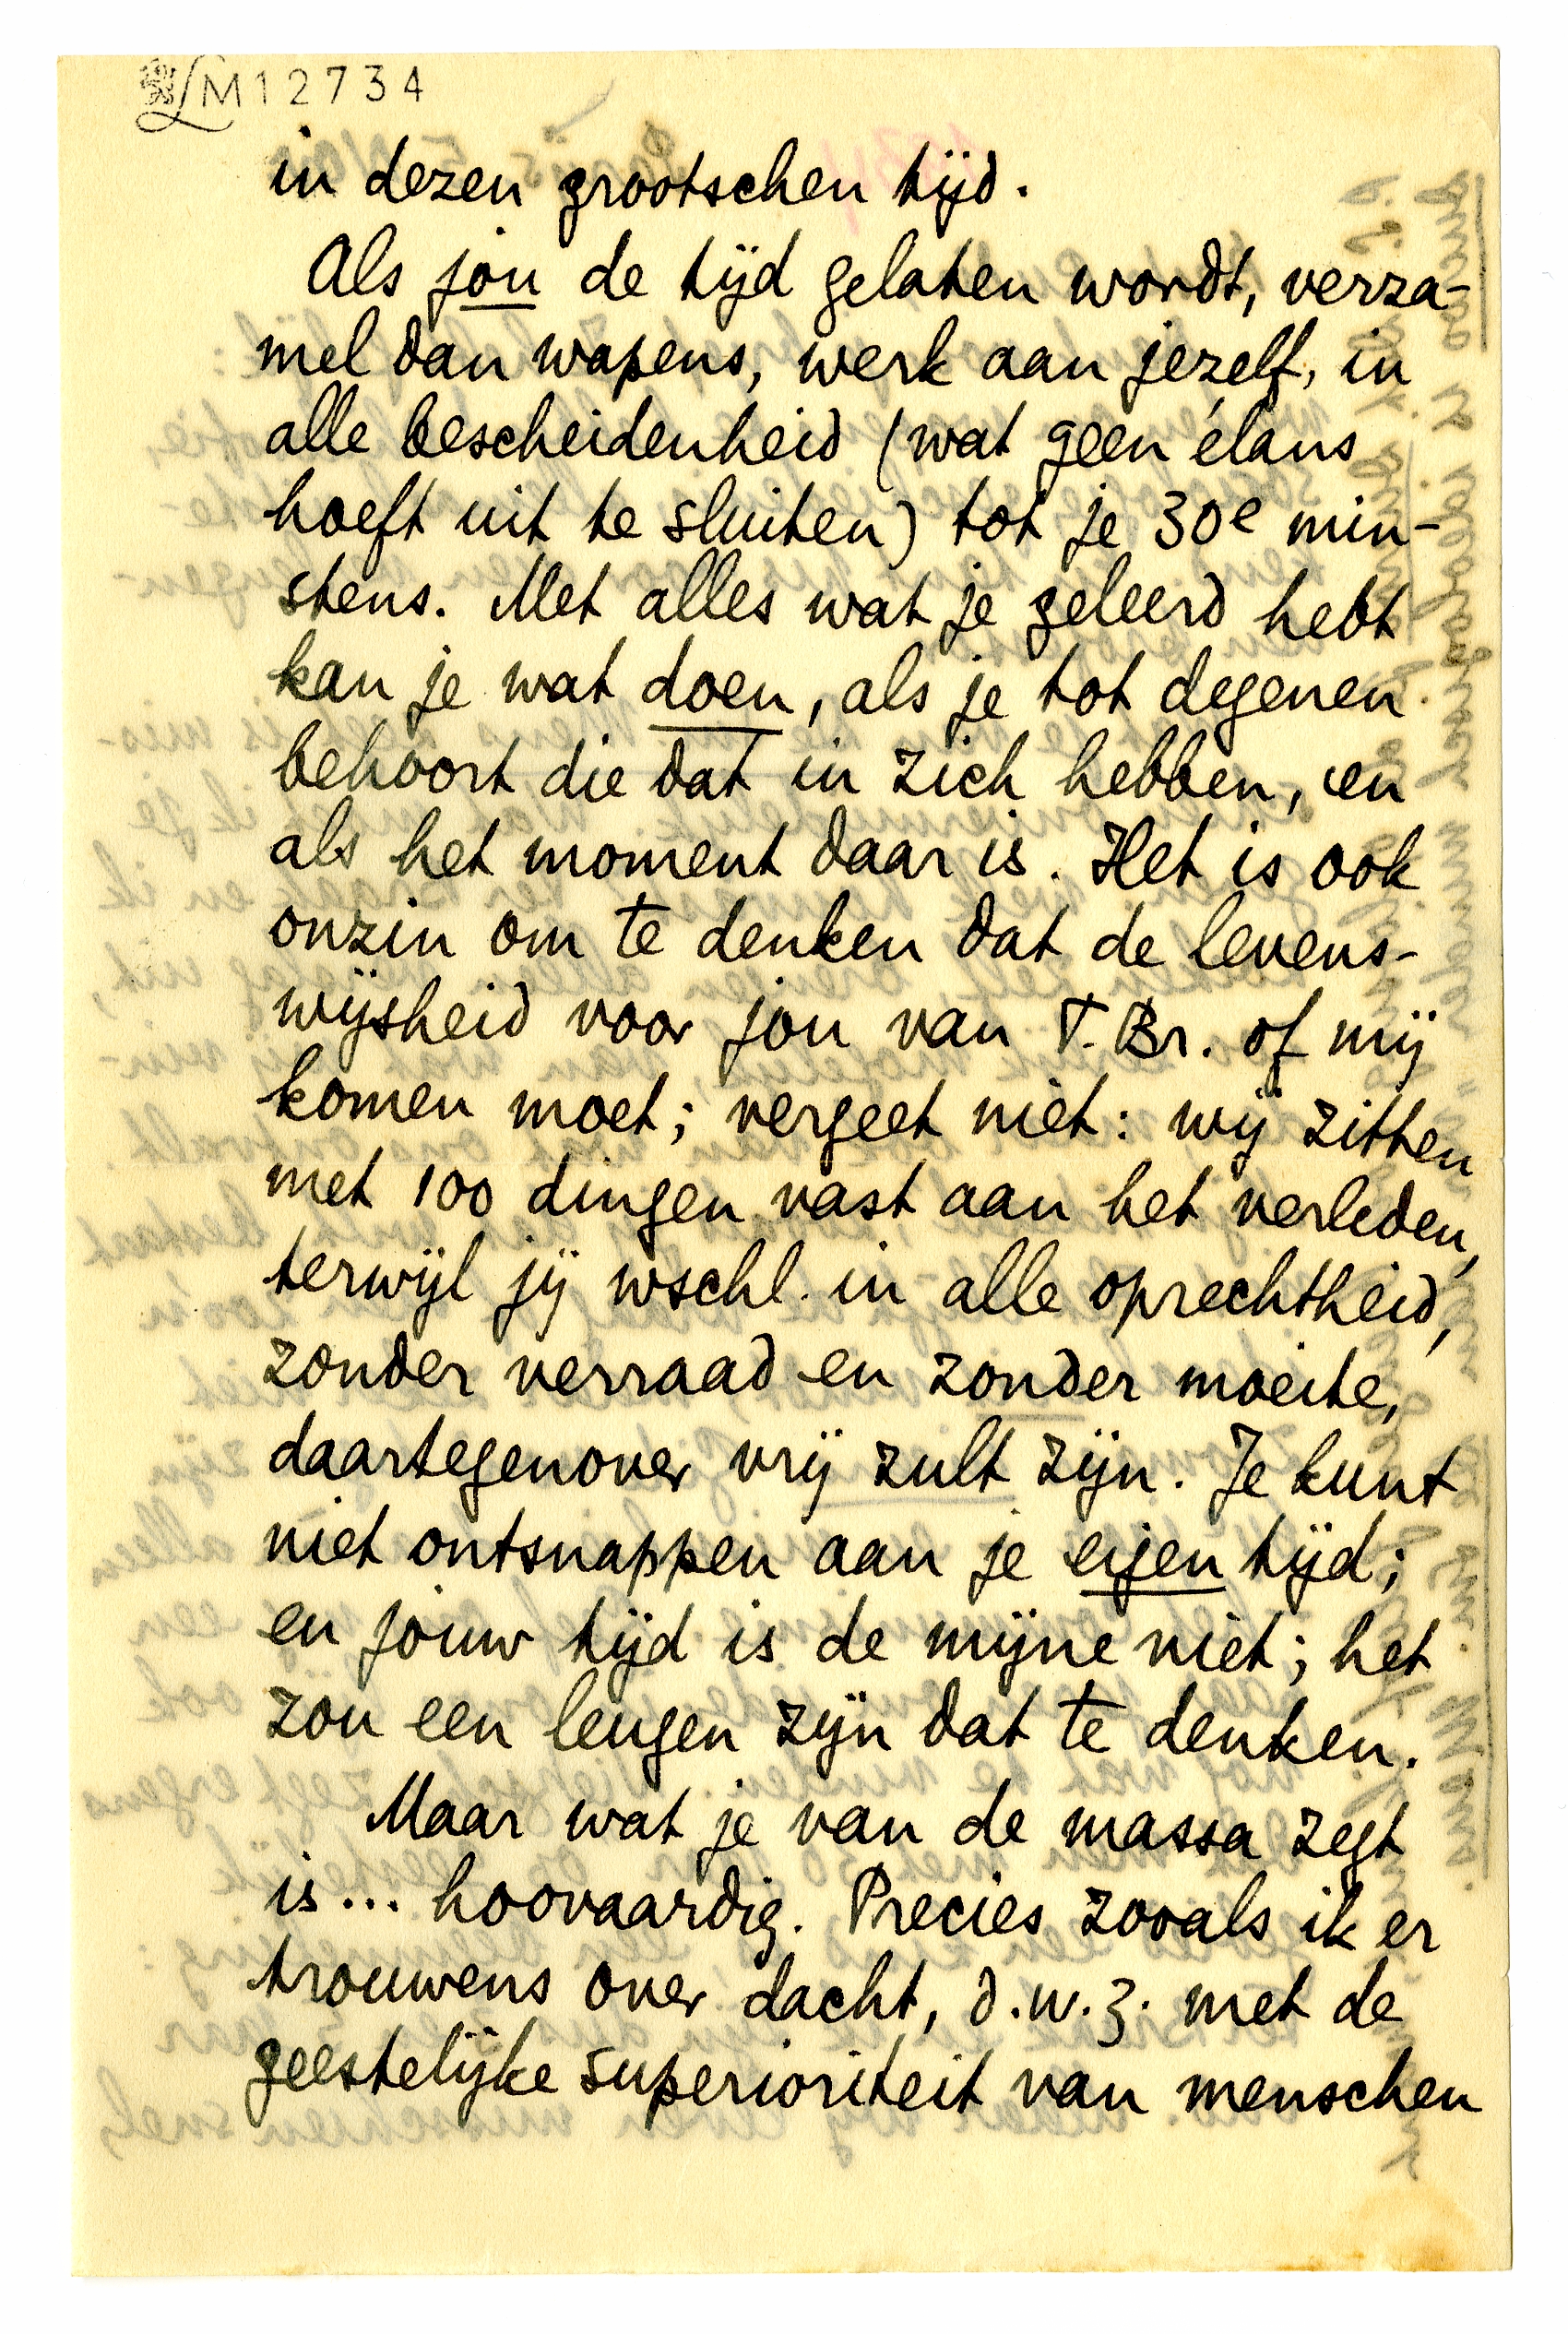 LM12734
in dezen grootschen tijd.
Als jou de tijd gelaten wordt, verza-
mel dan wapens, werk aan jezelf, in
alle bescheidenheid (wat geen élans
hoeft uit te sluiten) tot je 30e min-
stens. Met alles wat je geleerd hebt
kan je wat doen, als je tot degenen
behoort die dat in zich hebben, en
als het moment daar is. Het is ook
onzin om te denken dat de levens-
wijsheid voor jou van T. Br. of mij
komen moet; vergeet niet: wij zitten
met 100 dingen vast aan het verleden,
terwijl jij wschl. in alle oprechtheid,
zonder verraad en zonder moeite,
daartegenover vrij zult zijn. Je kunt
niet ontsnappen aan je eigen tijd;
en jouw tijd is de mijne niet; het
zou een leugen zijn dat te denken.
Maar wat je van de massa zegt
is... hoovaardig. Precies zooals ik er
trouwens over dacht, d.w.z. met de
geestelijke superioriteit van menschen